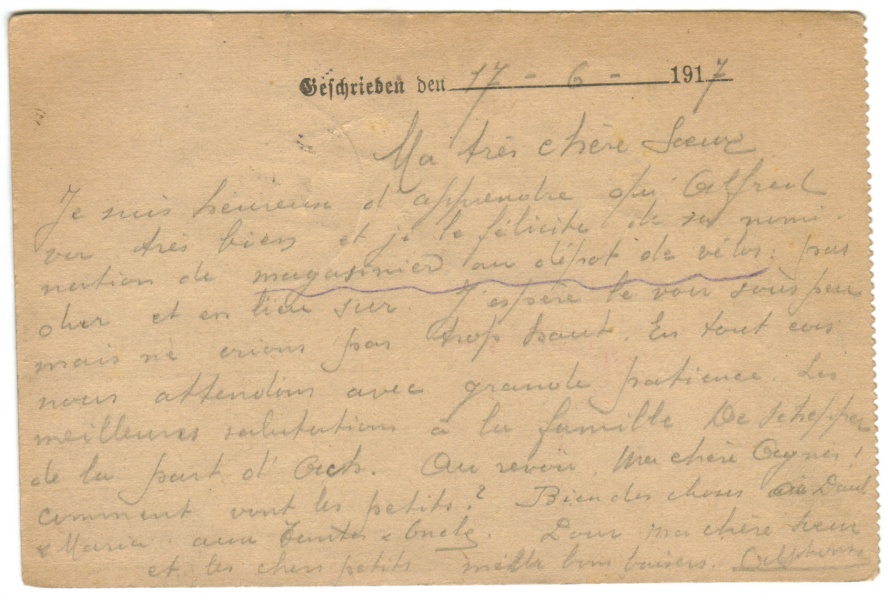 Geschrieben den 17 - 6 - 1917
Ma très chère Soeur
Je suis heureux d'apprendre qu'Alfred
va très bien et je le félicite de sa nomi-
nation de magasinier au dépôt de vélos: pas
cher et en lieu sur. J'espère le voir sous peu
mais ne crions pas trop haut. En tout cas
nous attendons avec grande patience. Les
meilleures salutations à la famille De Schepper
de la part d'Oct. Au revoir, ma chère Agnes,
comment vont les petits? Bien des choses à Paul
& Maria, aux Tantes & Oncle. Pour ma chère soeur
et les chers petits mille bons baisers. Alphonse